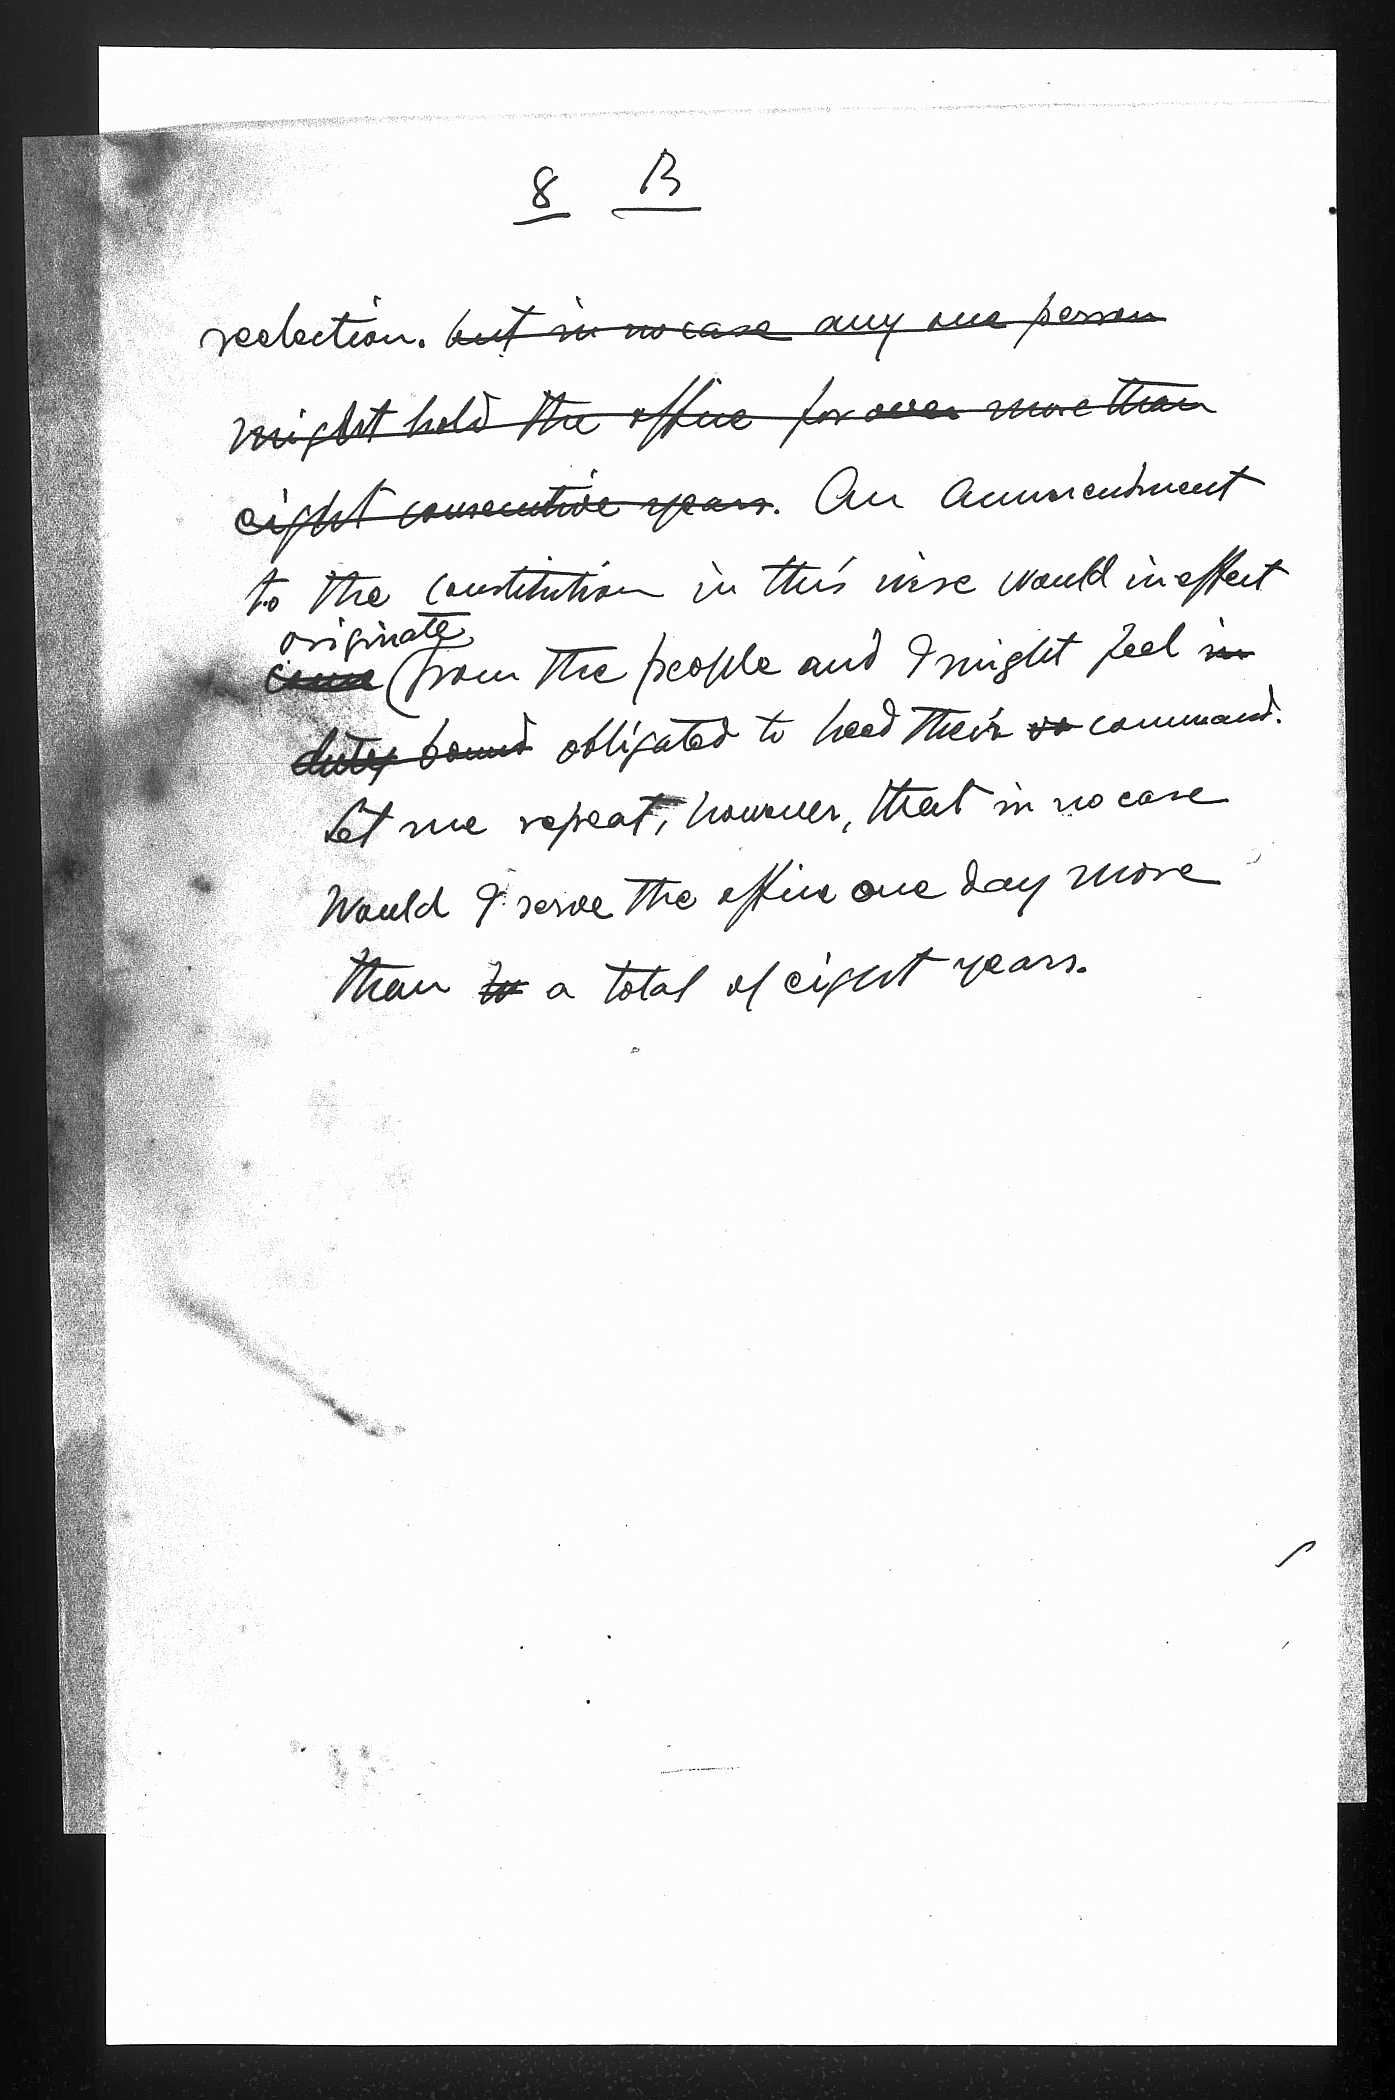 8 B
reelection. but in no case any one person
might hold the office for over more than
eight consecutive years. An Ammendment
to the constitution in this wise would in effect
originate
came from the people and I might feel in
duty bound obligated to heed their so command.
Let me repeat, however, that in no case
Would I serve the office one day more
than a total of eight years.